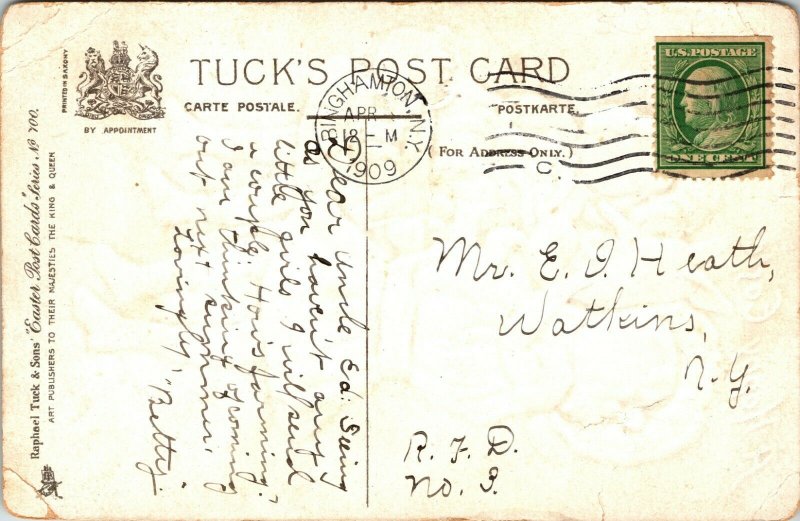 PRINTED IN SAXONY
BY APPOINTMENT
TUCK'S POST CARD
CARTE POSTALE.
POSTKARTE.
(FOR ADDRESS ONLY.)
BINGHAMTON, N.Y.
APR
12 - M
1909
C.
U.S. POSTAGE
ONE CENT
Raphael Tuck & Sons' "Easter Post Cards" Series No 700.
ART PUBLISHERS TO THEIR MAJESTIES THE KING & QUEEN
Dear Uncle Ed: Seeing
as you haven't any
little girls I will send
a couple. How's farming?
I am thinking of coming
out next summer.
Lovingly, "Betty."
Mr. E. I. Heath,
Watkins,
N.Y.
R.F.D.
No. 3.